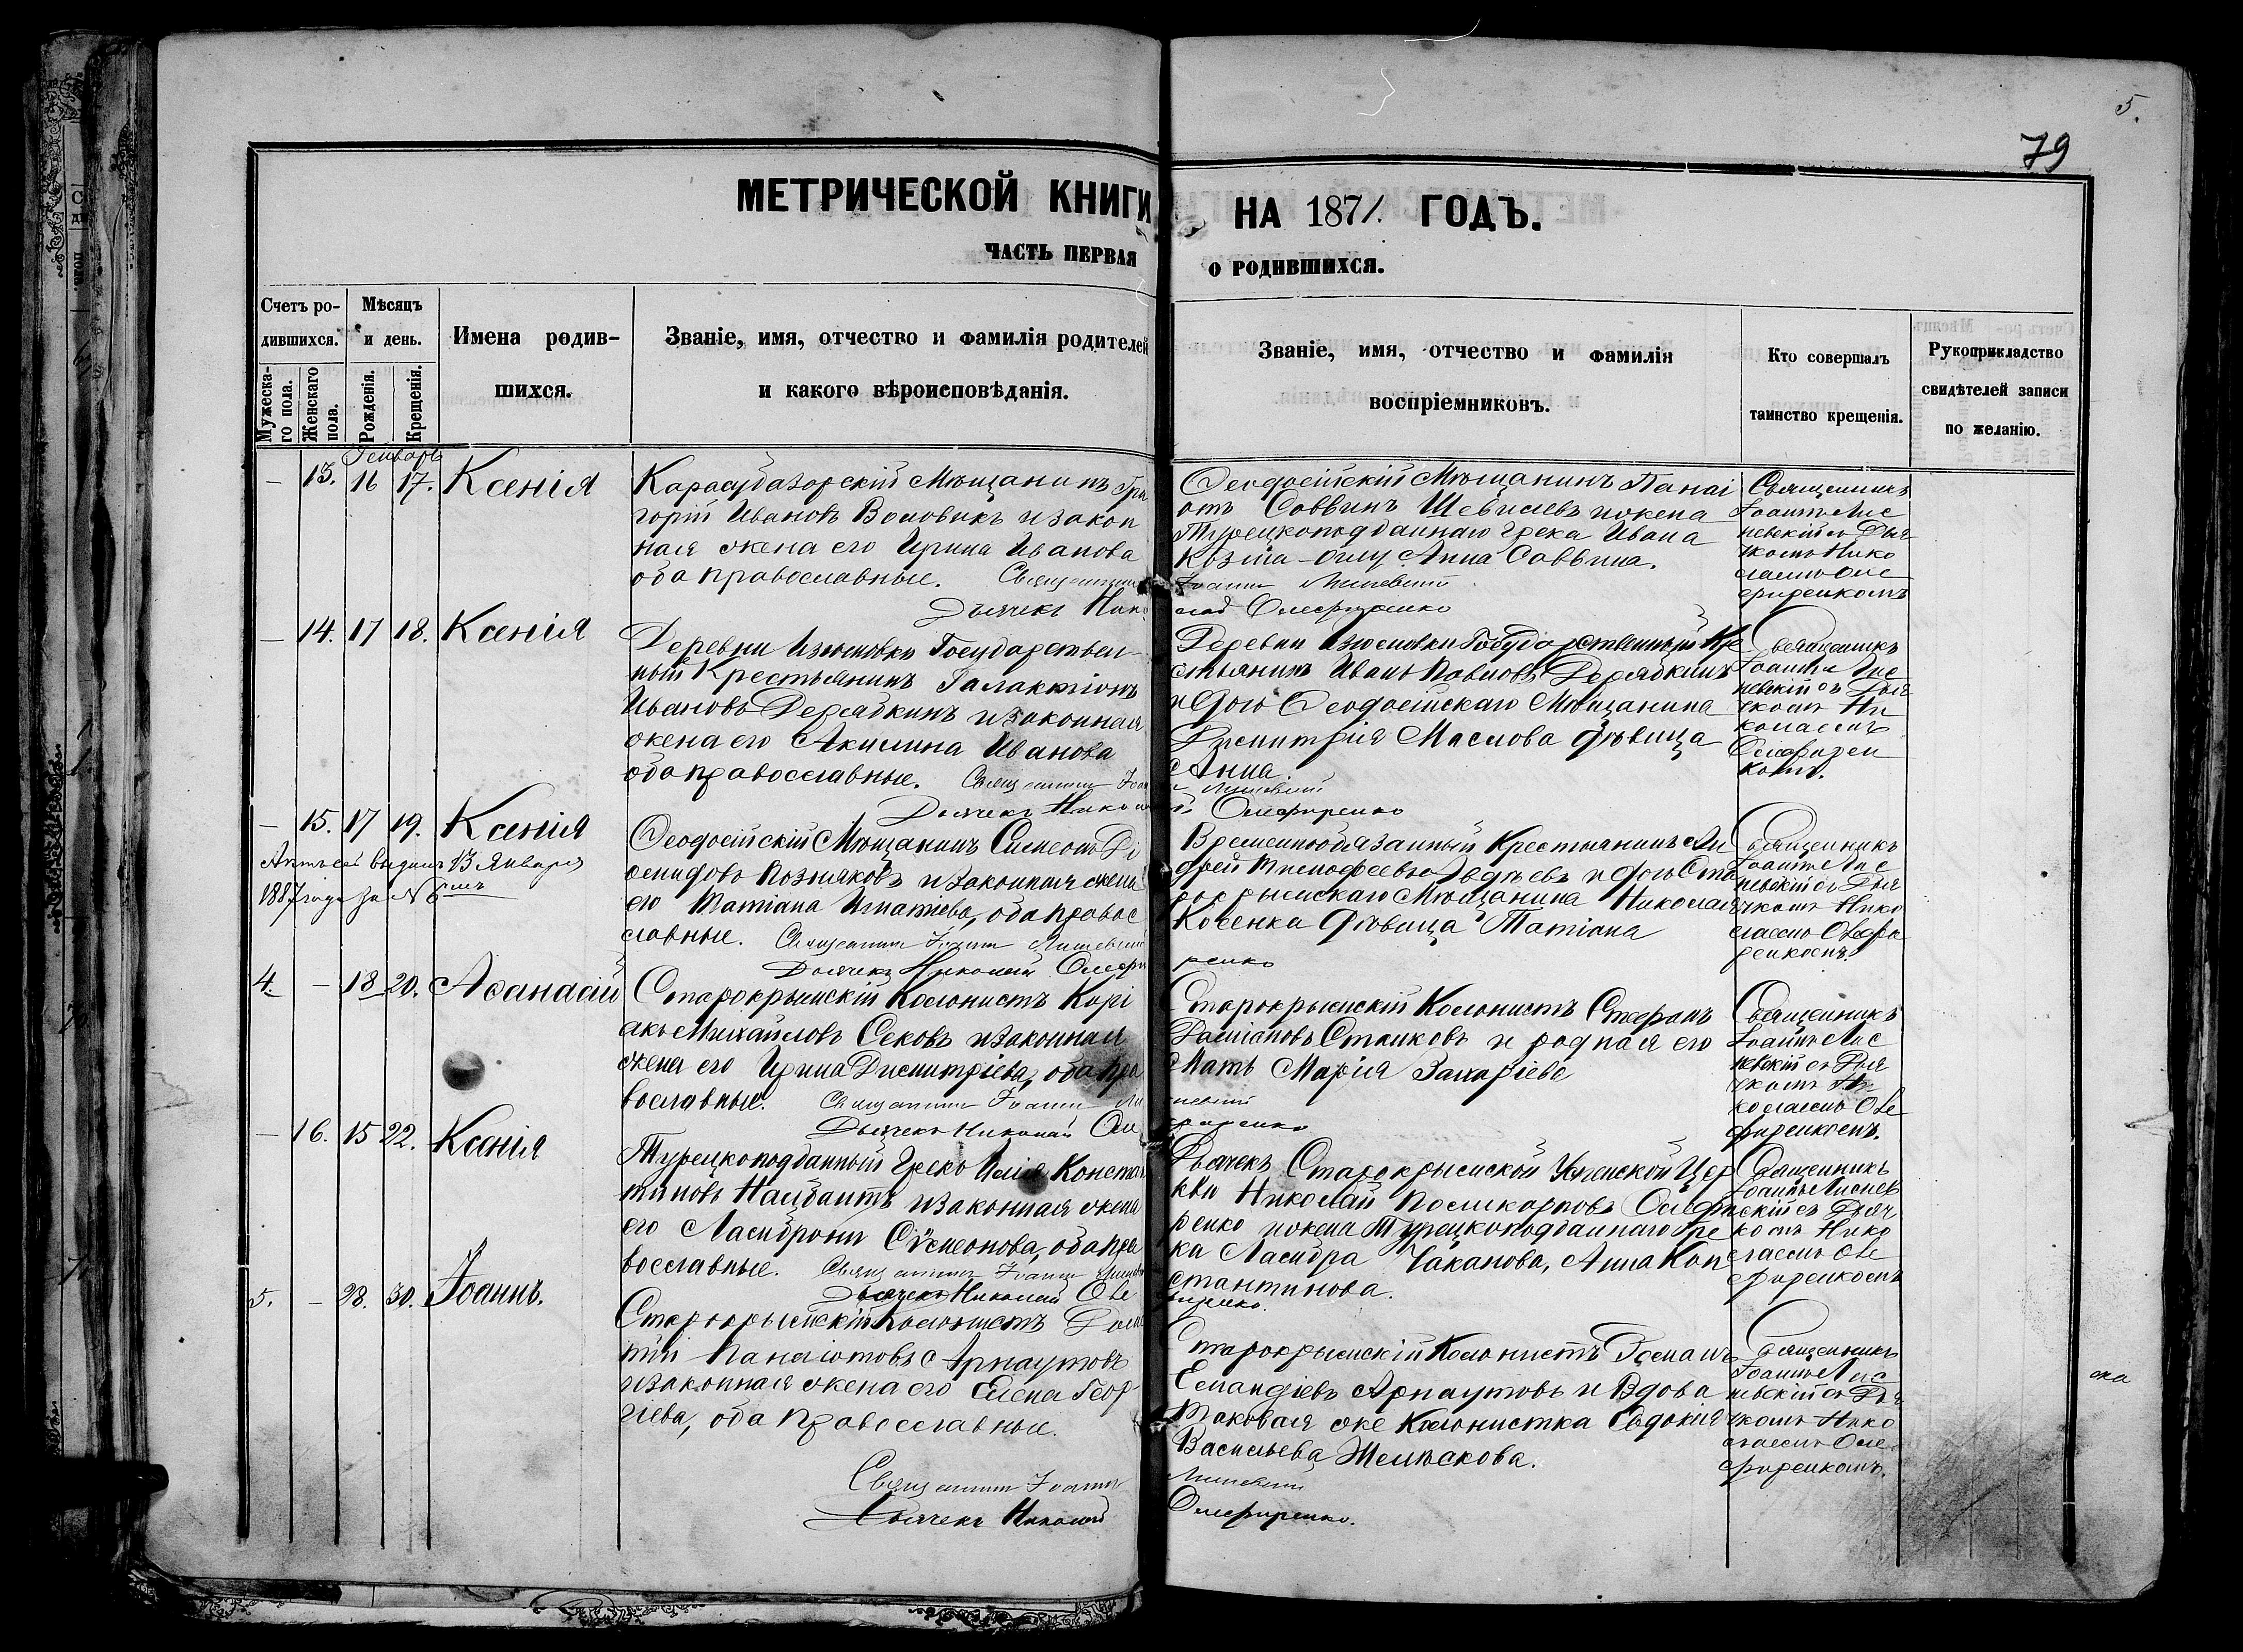 5.
79
МЕТРИЧЕСКОЙ КНИГИ НА 1871. ГОДЪ.
ЧАСТЬ ПЕРВАЯ О РОДИВШИХСЯ.
Счетъ ро-
дившихся.
Мужеска-
го пола.
Женскаго
пола.
Мѣсяцъ
и день.
Рожденія.
Крещенія.
Имена родив-
шихся.
Званіе, имя, отчество и фамилія родителей
и какого вѣроисповѣданія.
Званіе, имя, отчество и фамилія
воспріемниковъ.
Кто совершалъ
таинство крещенія.
Рукоприкладство
свидѣтелей записи
по желанію.
Генварь
— 13. 16 17. Ксенія
Карасубазарскій Мѣщанинъ Гри
горій Ивановъ Воловикъ и закон
ная жена его Ирина Иванова
оба православные. Священникъ
Дьячекъ Нико
Ѳеодосійскій Мѣщанинъ Панаі
отъ Саввинъ и жена
Турецкоподданнаго Грека Ивана
Анна Саввина.
Іоаннъ
лай Олефиренко
Священникъ
Іоаннъ
съ Дья
чкомъ Нико
лаемъ Оле
фиренкомъ
— 14. 17 18. Ксенія
Деревни Изюмовки Государствен
ный Крестьянинъ Галактіонъ
Ивановъ Дерябкинъ и законная
жена его Акилина Иванова
оба православные. Священникъ Іоан
Дьячекъ Никол
Деревни Изюмовки Государственный Кре
стьянинъ Иванъ Павловъ Дерябкинъ
и дочь Ѳеодосійскаго Мѣщанина
Димитрія Маслова дѣвица
Анна.
й Олефиренко
Священникъ
Іоаннъ
съ Дья
чкомъ Ни
колаемъ
Олефирен
комъ.
— 15. 17 19. Ксенія
выданъ 13 Января
1887 года за № 6
Ѳеодосійскій Мѣщанинъ Симеонъ Ді
омидовъ Позняковъ и законная жена
его Татіана Игнатіева, оба правос
лавные. Священникъ Іоаннъ
Дьячекъ Николай Олефи
Временнообязанный Крестьянинъ Ан
дрей Тимофеевъ и дочь Ста
рокрымскаго Мѣщанина Николая
Коченка дѣвица Татіана
ренко
Священникъ
Іоаннъ
съ Дья
чкомъ Нико
лаемъ Олефи
ренкомъ.
4. — 18 20. Аѳанасій
Старокрымскій Колонистъ Кирі
акъ Михайловъ Сековъ и законная
жена его Ирина Димитріева, оба пра
вославные. Священникъ Іоаннъ
Дьячекъ Николай Оле
Старокрымскій Колонистъ Стефанъ
Даміановъ Станковъ и родная его
Мать Марія Захаріева
фиренко
Священникъ
Іоаннъ
съ Дья
чкомъ Ни
колаемъ Оле
фиренкомъ.
— 16. 15 22. Ксенія
Турецкоподданный Грекъ Илія Констан
тиновъ и законная жена
его Симеонова, оба пра
вославные. Священникъ Іоаннъ
Дьячекъ Николай Оле
Дьячекъ Старокрымской Успенской Цер
кви Николай Поликарповъ Олефи
ренко и жена Турецкоподданнаго Гре
ка Чаканова, Анна Кон
стантинова.
фиренко.
Священникъ
Іоаннъ
съ Дьяч
комъ Нико
лаемъ Оле
фиренкомъ
5. — 28. 30. Іоаннъ.
Старокрымскій Колонистъ
Панаіотовъ Арнаутовъ
и законная жена его Елена Геор
гіева, оба православные.
Священникъ Іоаннъ
Дьячекъ Николай
Старокрымскій Колонистъ
Арнаутовъ и Вдова
таковая же Колонистка Евдокія
Васильева Желѣскова.
Олефиренко.
Священникъ
Іоаннъ
съ Дья
чкомъ Нико
лаемъ Оле
фиренкомъ.